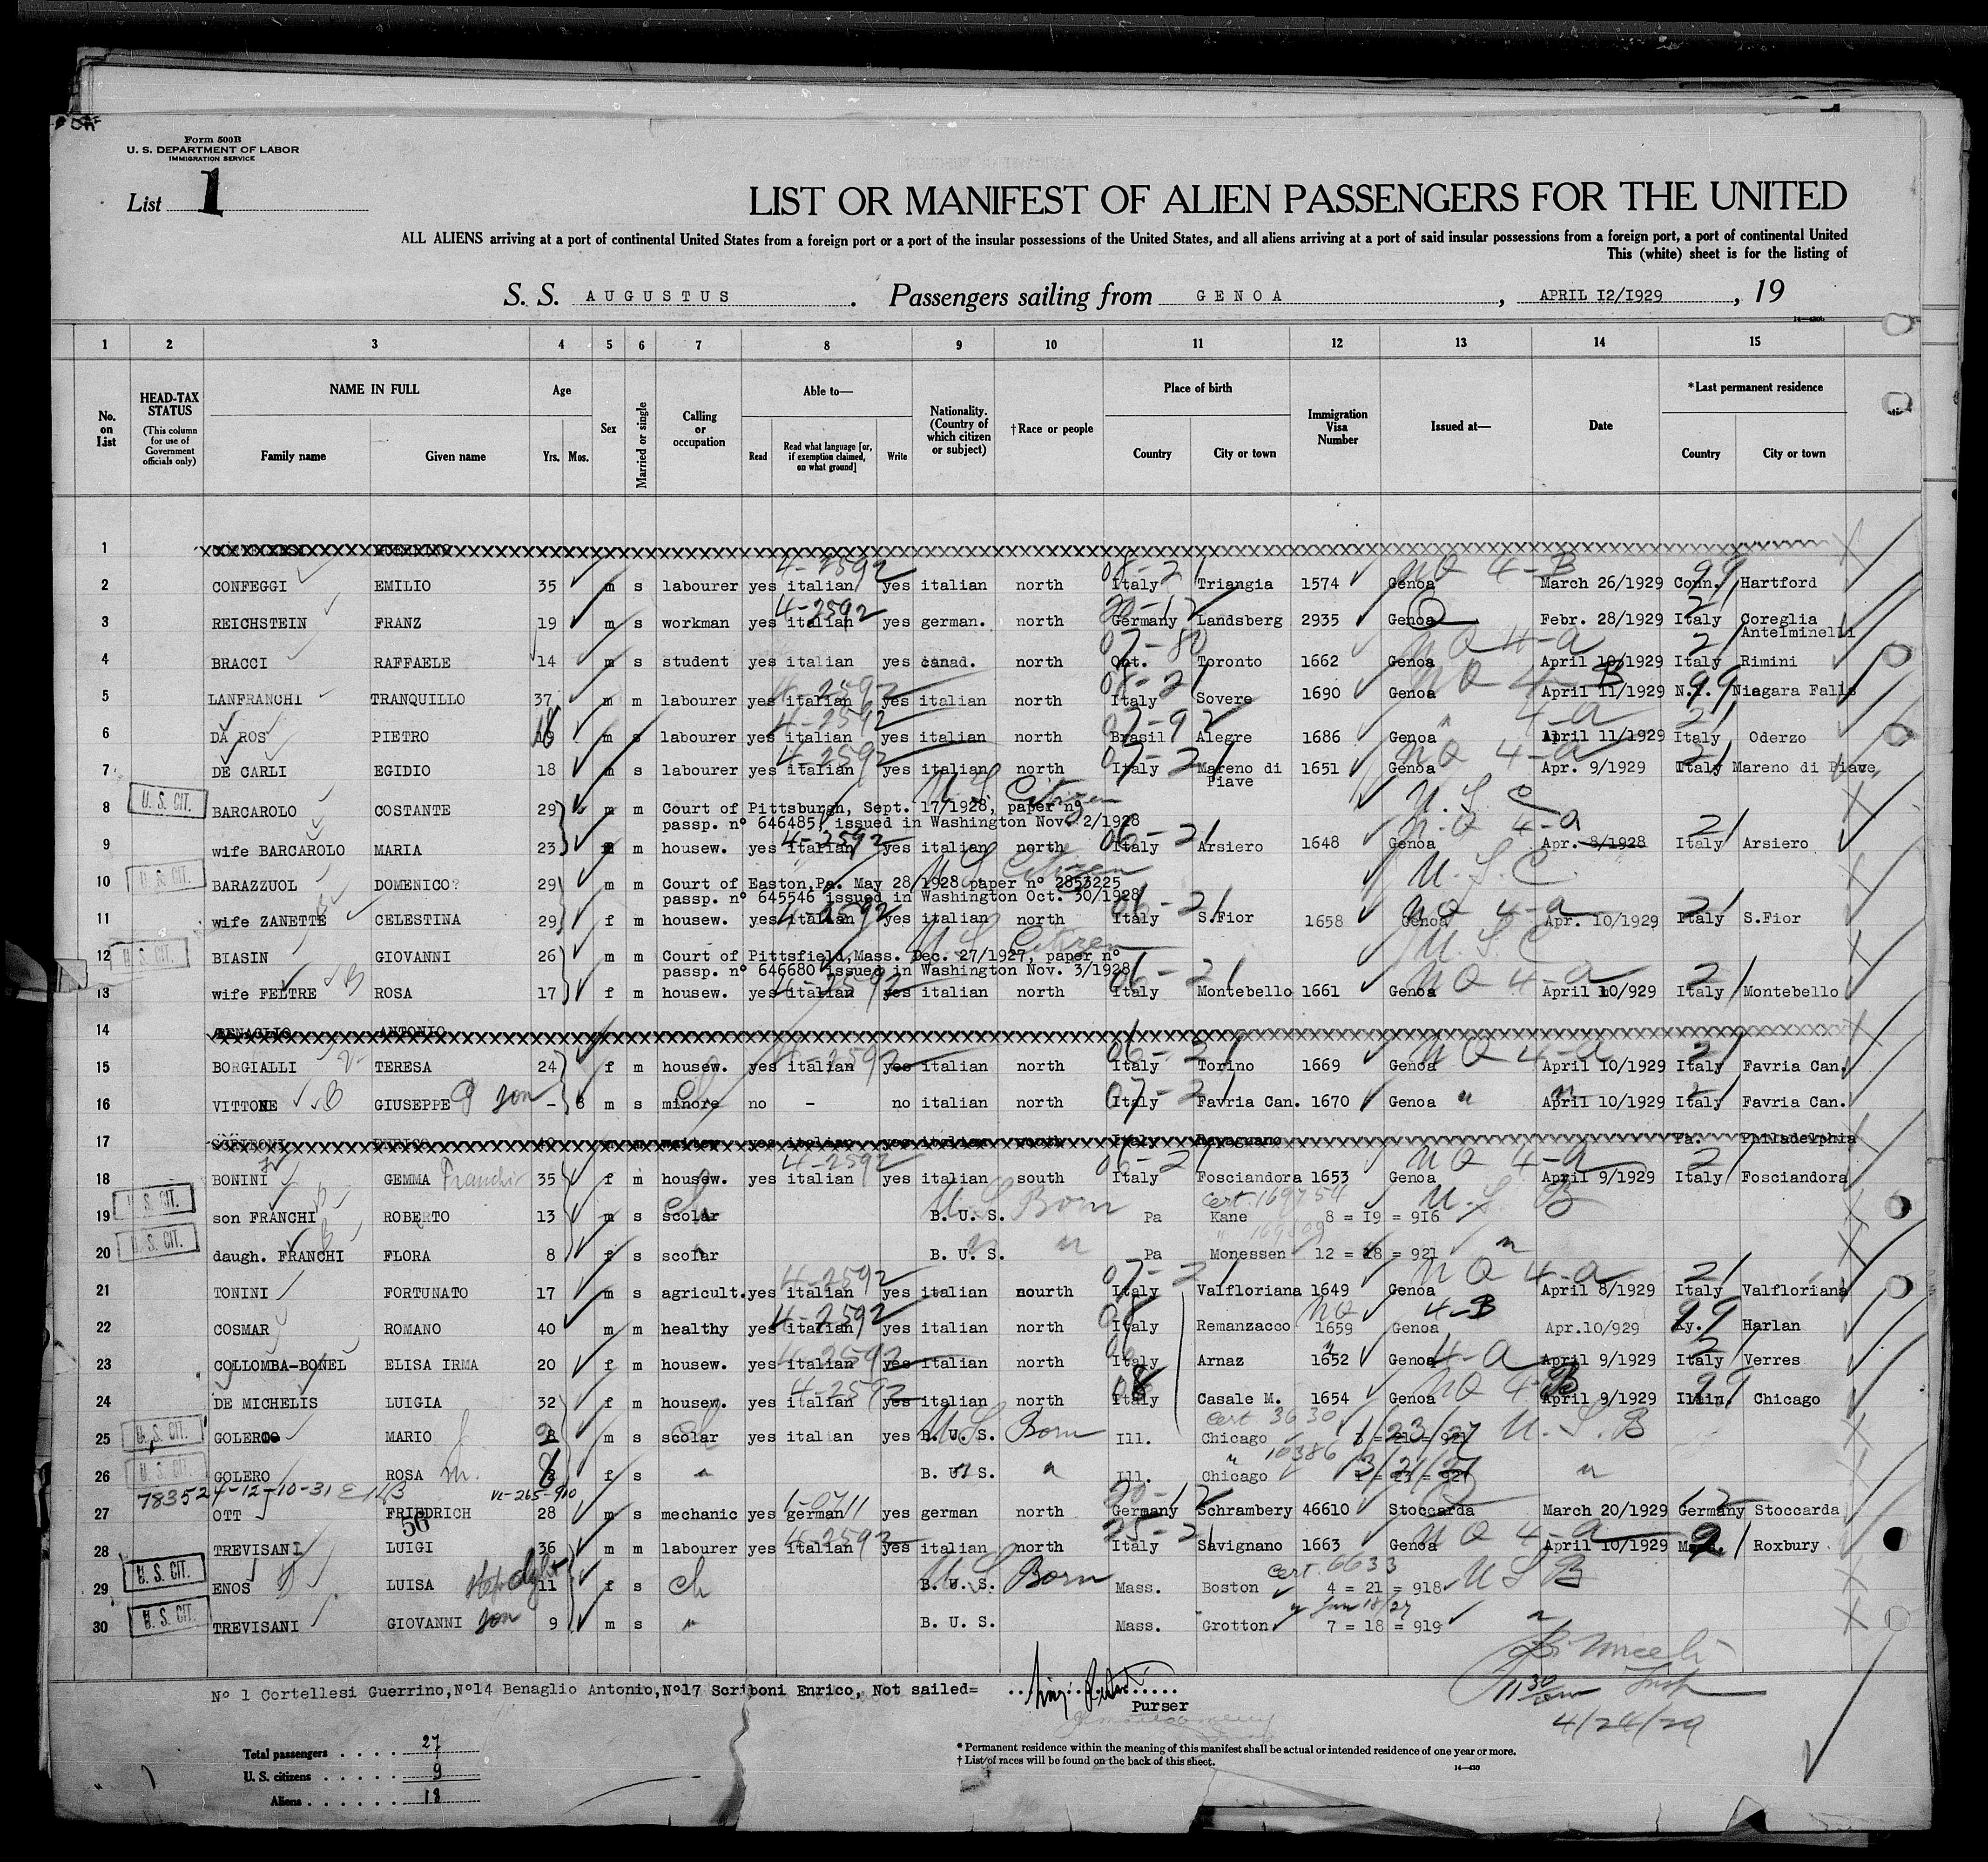 Form 500B
U. S. DEPARTMENT OF LABOR
IMMIGRATION SERVICE
List 1
LIST OR MANIFEST OF ALIEN PASSENGERS FOR THE UNITED
ALL ALIENS arriving at a port of continental United States from a foreign port or a port of the insular possessions of the United States, and all aliens arriving at a port of said insular possessions from a foreign port, a port of continental United
This (white) sheet is for the listing of
S. S. AUGUSTUS . Passengers sailing from GENOA , APRIL I2/I929 , 19
1 2 3 4 5 6 7 8 9 10 11 12 13 14 15
No. on List
HEAD-TAX STATUS (This column for use of Government officials only)
NAME IN FULL Family name Given name
Age Yrs. Mos.
Sex
Married or single
Calling or occupation
Able to— Read Read what language [or, if exemption claimed, on what ground] Write
Nationality. (Country of which citizen or subject)
†Race or people
Place of birth Country City or town
Immigration Visa Number
Issued at—
Date
*Last permanent residence Country City or town
1
2 CONFEGGI EMILIO 35 m s labourer yes italian 4-2592 yes italian north Italy Triangia 1574 Genoa NQ 4-B March 26/1929 Conn. 99 Hartford
3 REICHSTEIN FRANZ 19 m s workman yes italian 4-2592 yes german. north Germany Landsberg 2935 Genoa Q Febr. 28/1929 Italy Coreglia Antelminelli
4 BRACCI RAFFAELE 14 m s student yes italian yes canad. north Ont. 07-80 Toronto 1662 Genoa NQ 4-a April 10/1929 Italy 21 Rimini
5 LANFRANCHI TRANQUILLO 37 m m labourer yes italian 4-2592 yes italian north Italy 08-21 Sovere 1690 Genoa NQ 4-B April 11/1929 N.Y. 99 Niagara Falls
6 DA ROS PIETRO m s labourer yes italian 4-2592 yes italian north Brasil 07-92 Alegre 1686 Genoa " 4-a April 11/1929 Italy 21 Oderzo
7 DE CARLI EGIDIO 18 m s labourer yes italian 4-2592 yes italian north Italy 07-21 Mareno di Piave 1651 Genoa NQ 4-a Apr. 9/1929 Italy 21 Mareno di Piave
8 U. S. CIT. BARCAROLO COSTANTE 29 m m Court of Pittsburgh, Sept. 17/1928, paper n° U S Citizen U. S. C
passp. n° 646485 issued in Washington Nov. 2/1928
9 wife BARCAROLO MARIA 23 m housew. yes italian 4-2592 yes italian north Italy 06-21 Arsiero 1648 Genoa NQ 4-a Apr. 8/1928 Italy 21 Arsiero
10 U. S. CIT. BARAZZUOL DOMENICO? 29 m m Court of Easton,Pa. May 28/1928 paper n° 2853225 U S Citizen U. S. C.
passp. n° 645546 issued in Washington Oct. 30/1928
11 wife ZANETTE CELESTINA 29 f m housew. yes italian 4-2592 yes italian north Italy 06-21 S.Fior 1658 Genoa NQ 4-a Apr. 10/1929 Italy 21 S.Fior
12 U. S. CIT. BIASIN GIOVANNI 26 m m Court of Pittsfield,Mass. Dec. 27/1927, paper n° U S Citizen U. S. C
passp. n° 646680 issued in Washington Nov. 3/1928
13 wife FELTRE ROSA 17 f m housew. yes italian 4-2592 yes italian north Italy 06-21 Montebello 1661 Genoa NQ 4-a April 10/929 Italy 21 Montebello
14 BENAGLIO ANTONIO
15 BORGIALLI TERESA 24 f m housew. yes italian 4-2592 yes italian north Italy 06-21 Torino 1669 Genoa NQ 4-a April 10/1929 Italy 21 Favria Can.
16 VITTONE GIUSEPPE son - 8 m s minore no - no italian north Italy 07-21 Favria Can. 1670 Genoa " " April 10/1929 Italy Favria Can.
17 SCRIBONI ENRICO yes italian yes italian north Italy Pa. Philadelphia
18 BONINI GEMMA Franchi 35 f m housew. yes italian 4-2592 yes italian south Italy 06-21 Fosciandora 1653 Genoa NQ 4-a April 9/1929 Italy 21 Fosciandora
19 U. S. CIT. son FRANCHI ROBERTO 13 m s scolar B. U. S. U S Born Pa Kane Cert. 169754 8 = I9 = 9I6 U. S. B
20 U. S. CIT. daugh. FRANCHI FLORA 8 f s scolar B. U. S. " " Pa Monessen 12 = 18 = 921 "
21 TONINI FORTUNATO 17 m s agricult. yes italian 4-2592 yes italian nourth Italy 07-21 Valfloriana 1649 Genoa NQ 4-a April 8/1929 Italy 21 Valfloriana
22 COSMAR ROMANO 40 m m healthy yes italian 4-2592 yes italian north Italy 08 Remanzacco 1659 NQ Genoa 4-B Apr.10/929 Ky. 99 Harlan
23 COLLOMBA-BONEL ELISA IRMA 20 f m housew. yes italian 4-2592 yes italian north Italy 06 Arnaz 1652 Genoa 4-a April 9/1929 Italy 21 Verres
24 DE MICHELIS LUIGIA 32 f m housew. yes italian 4-2592 yes italian north Italy 08 Casale M. 1654 Genoa NQ 4-B April 9/1929 Illin. 99 Chicago
25 U. S. CIT. GOLERO MARIO m s scolar yes italian yes B. U. S. U S Born Ill. Chicago Cert 3630 1/23/27 U. S. B
26 U. S. CIT. GOLERO ROSA m. f s " B. U. S. " Ill. Chicago " 10386 3/21/27 "
27 OTT FRIEDRICH 28 m s mechanic yes german 1-0711 yes german north Germany Schrambery 46610 Stoccarda Q March 20/1929 Germany 12 Stoccarda
28 TREVISANI LUIGI 56 36 m m labourer yes italian 4-2592 yes italian north Italy 25-21 Savignano 1663 Genoa NQ 4-a April 10/1929 Roxbury
29 U. S. CIT. ENOS LUISA Step dght 11 f s ch B. U. S. U S Born Mass. Boston Cert. 6633 4 = 21 = 918 U S B
30 U. S. CIT. TREVISANI GIOVANNI son 9 m s " B. U. S. Mass. Grotton " Jan 18/27 7 = 18 = 919 "
N° 1 Cortellesi Guerrino,N°14 Benaglio Antonio,N°17 Scriboni Enrico, Not sailed=
Purser
11 30 am Insp
4/24/29
Total passengers 27
U. S. citizens 9
Aliens 18
* Permanent residence within the meaning of this manifest shall be actual or intended residence of one year or more.
† List of races will be found on the back of this sheet.
14—430